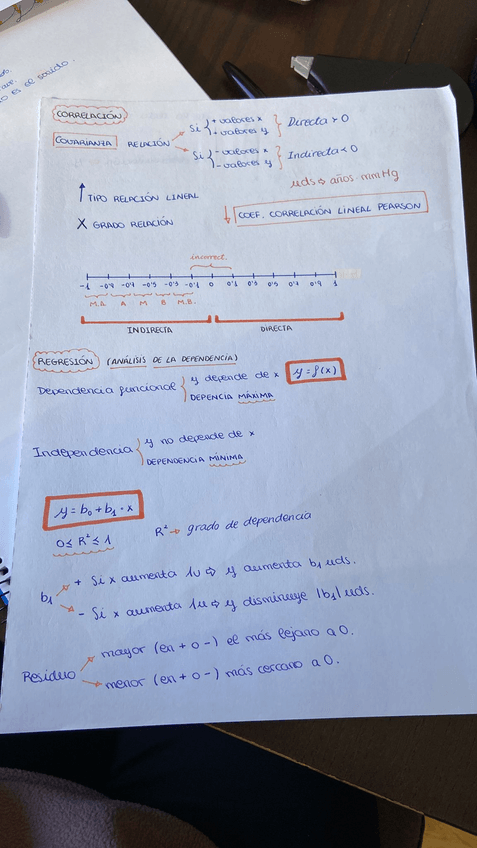 o es el sentido.
CORRELACIÓN
COVARIANZA RELACIÓN
Si { + valores x
+ valores y } Directa > 0
Si { - valores x
- valores y } Indirecta < 0
↑ TIPO RELACIÓN LINEAL
uds ⇨ años mmHg
X GRADO RELACIÓN
↓ COEF. CORRELACIÓN LINEAL PEARSON
incorrect.
-1 -0'9 -0'7 -0'5 -0'3 -0'1 0 0'1 0'3 0'5 0'7 0'9 1
M.A. A M B M.B.
INDIRECTA DIRECTA
REGRESIÓN (ANÁLISIS DE LA DEPENDENCIA)
Dependencia funcional { y depende de x y = f(x)
DEPENCIA MÁXIMA
Independencia { y no depende de x
DEPENDENCIA MÍNIMA
y = b₀ + b₁ · x
0 ≤ R² ≤ 1
R² → grado de dependencia
b₁
+ Si x aumenta 1u ⇨ y aumenta b₁ uds.
- Si x aumenta 1u ⇨ y disminuye |b₁| uds.
Residuo
mayor (en + o -) el más lejano a 0.
menor (en + o -) más cercano a 0.